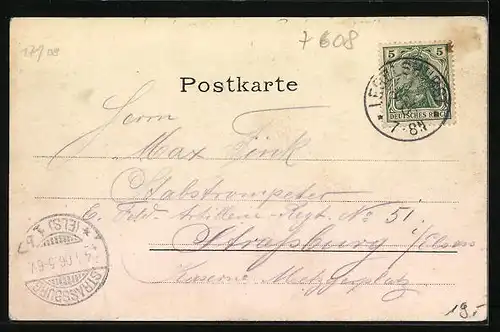 17/08
7608
5 5
DEUTSCHES REICH
7-8N
Postkarte
Herrn
Max Fink
Stabstrompeter
Feld-Artillerie-Regt. No 51.
Straßburg i/Elsass
Kaserne Metzgerplatz
STRASSBURG
(ELS)
4.1.06.5-6V.
19.-